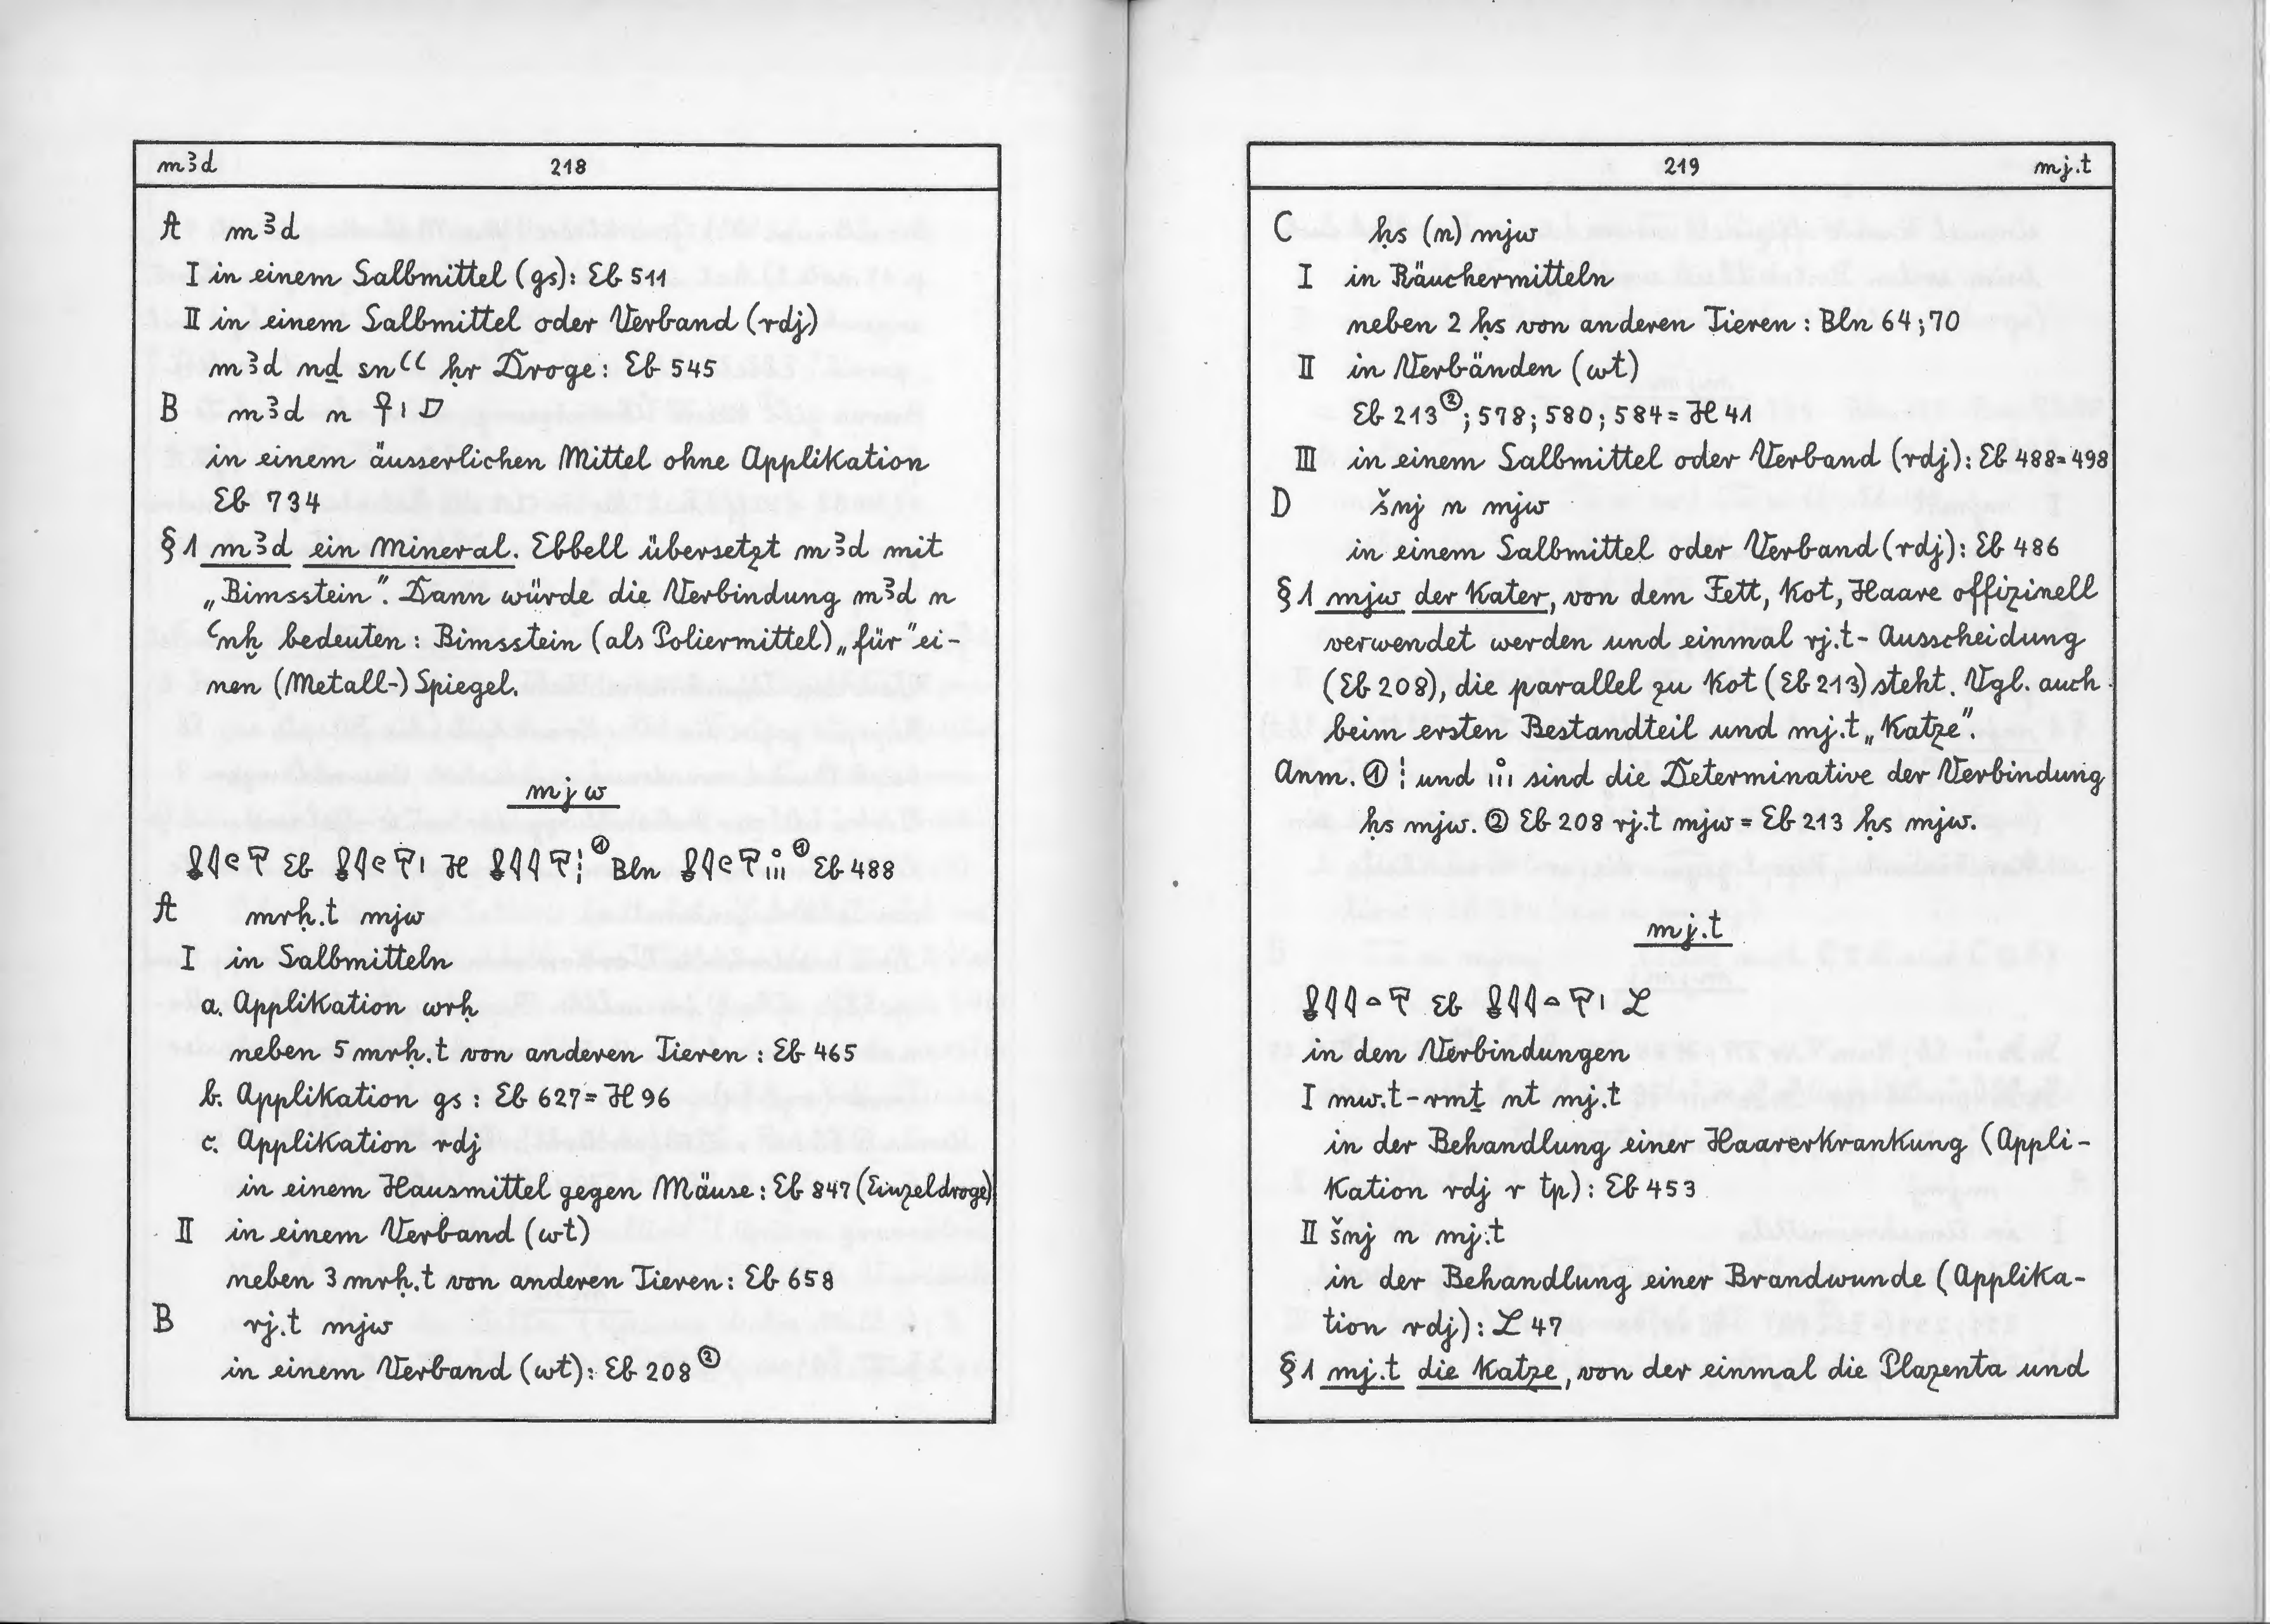 mꜣd 218
A mꜣd
I in einem Salbmittel (gs): Eb 511
II in einem Salbmittel oder Verband (rdj)
mꜣd nḏ snꜥꜥ ḥr Droge: Eb 545
B mꜣd n 𓋹𓏤
in einem äusserlichen Mittel ohne Applikation
Eb 734
§ 1 mꜣd ein Mineral. Ebbell übersetzt mꜣd mit
„Bimsstein". Dann würde die Verbindung mꜣd n
ꜥnḫ bedeuten: Bimsstein (als Poliermittel) „für" ei-
nen (Metall-) Spiegel.
mjw
Eb H ① Bln ① Eb 488
A mrḥ.t mjw
I in Salbmitteln
a. Applikation wrḥ
neben 5 mrḥ.t von anderen Tieren: Eb 465
b. Applikation gs: Eb 627 = H 96
c. Applikation rdj
in einem Hausmittel gegen Mäuse: Eb 847 (Einzeldroge)
II in einem Verband (wt)
neben 3 mrḥ.t von anderen Tieren: Eb 658
B rj.t mjw
in einem Verband (wt): Eb 208②
219 mj.t
C ḥs (n) mjw
I in Räuchermitteln
neben 2 ḥs von anderen Tieren: Bln 64; 70
II in Verbänden (wt)
Eb 213②; 578; 580; 584 = H 41
III in einem Salbmittel oder Verband (rdj): Eb 488 = 498
D šnj n mjw
in einem Salbmittel oder Verband (rdj): Eb 486
§ 1 mjw der Kater, von dem Fett, Kot, Haare offizinell
verwendet werden und einmal rj.t-Ausscheidung
(Eb 208), die parallel zu Kot (Eb 213) steht. Vgl. auch
beim ersten Bestandteil und mj.t „Katze".
Anm. ① und sind die Determinative der Verbindung
ḥs mjw. ② Eb 208 rj.t mjw = Eb 213 ḥs mjw.
mj.t
Eb L
in den Verbindungen
I mw.t-rmṯ nt mj.t
in der Behandlung einer Haarerkrankung (Appli-
kation rdj r tp): Eb 453
II šnj n mj.t
in der Behandlung einer Brandwunde (Applika-
tion rdj): L 47
§ 1 mj.t die Katze, von der einmal die Plazenta und